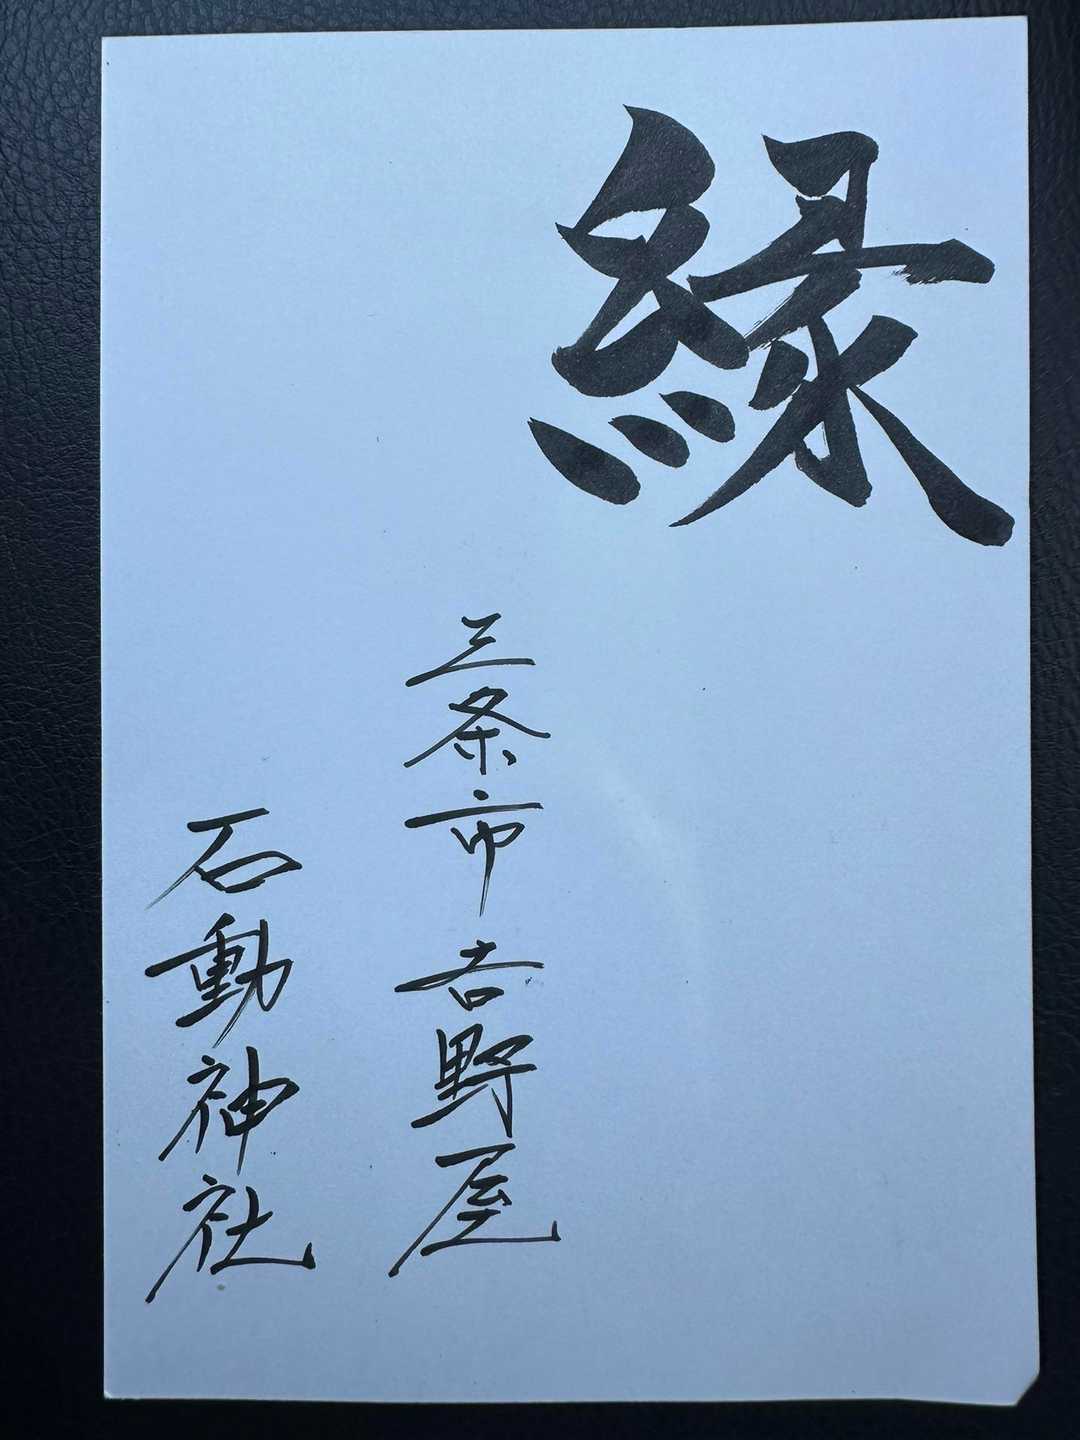 縁
三条市吉野屋
石動神社